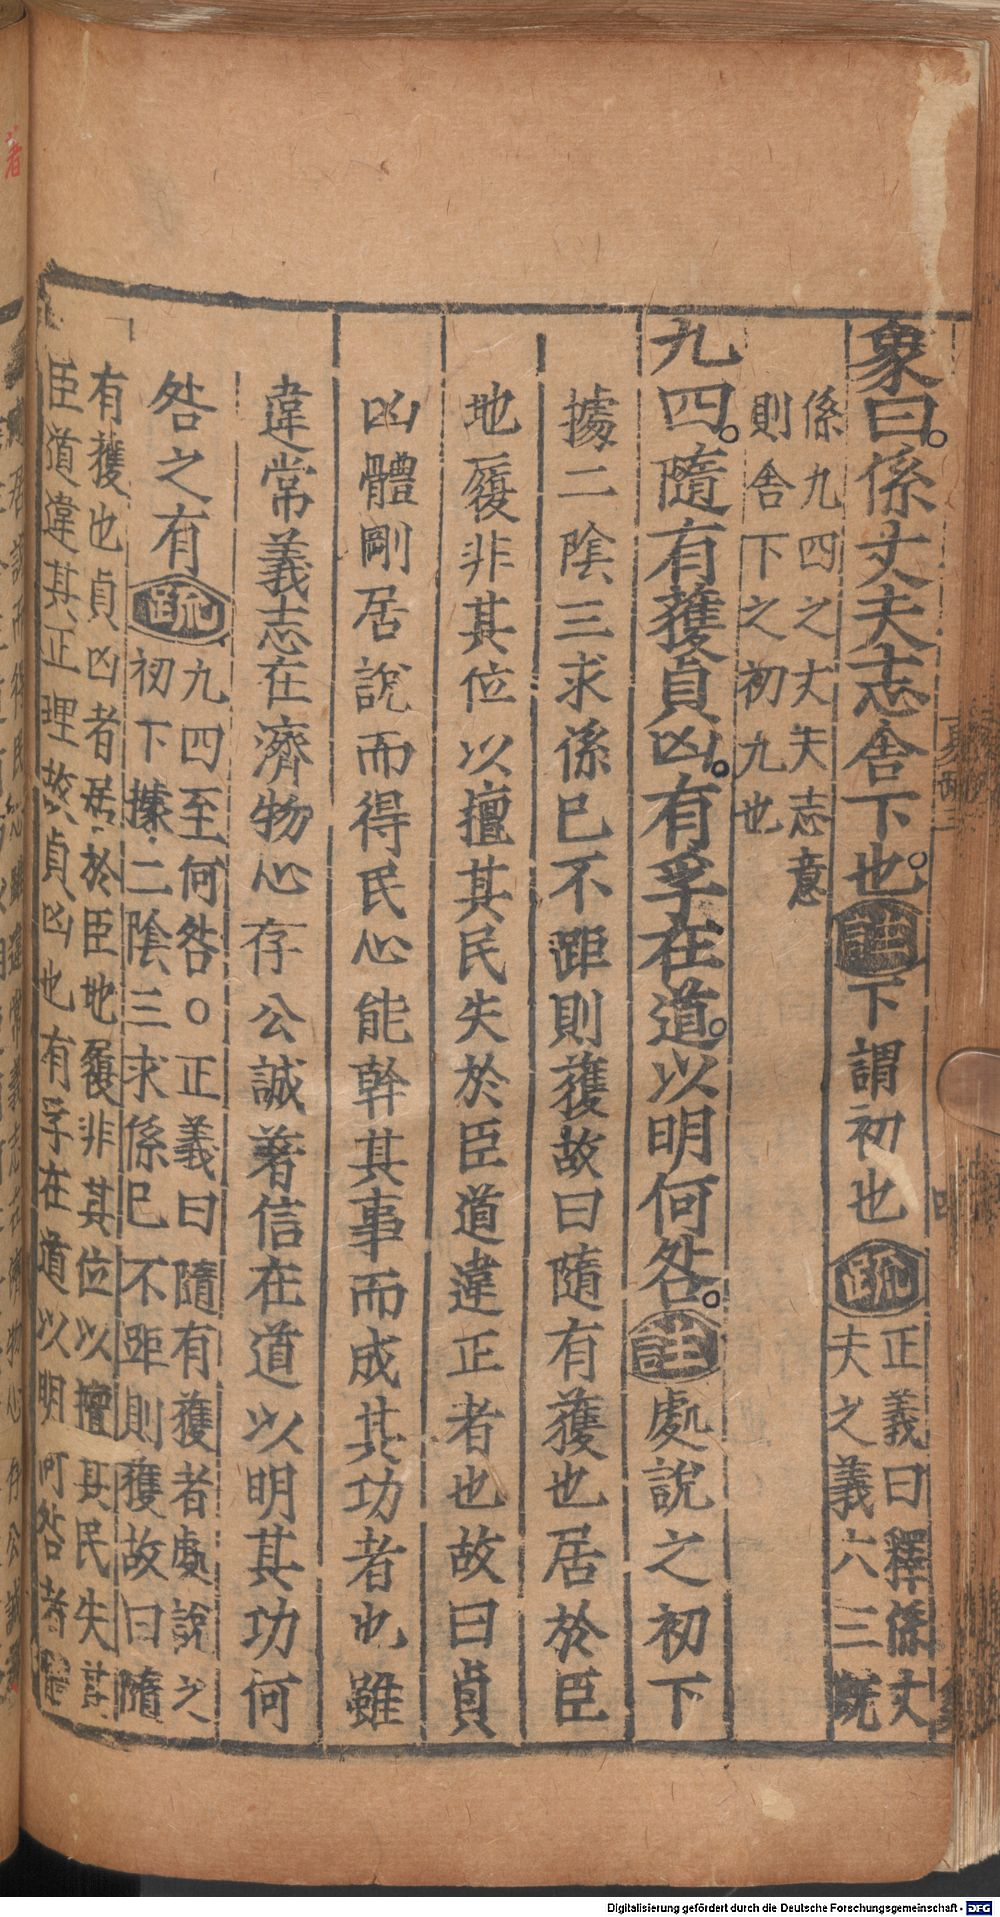 象曰係丈夫志舍下也註下謂初也疏正義曰釋係丈
夫之義六三既
係九四之丈夫志意
則舍下之初九也
九四隨有獲貞凶有孚在道以明何咎註處說之初下
據二陰三求係已不距則獲故曰隨有獲也居於臣
地履非其位以擅其民失於臣道違正者也故曰貞
凶體剛居說而得民心能幹其事而成其功者也雖
違常義志在濟物心存公誠著信在道以明其功何
咎之有疏九四至何咎○正義曰隨有獲者處說之
初下據二陰三求係已不距則獲故曰隨
有獲也貞凶者居於臣地履非其位以擅其民失其
臣道違其正理故貞凶也有孚在道以明何咎者
Digitalisierung gefördert durch die Deutsche Forschungsgemeinschaft - DFG